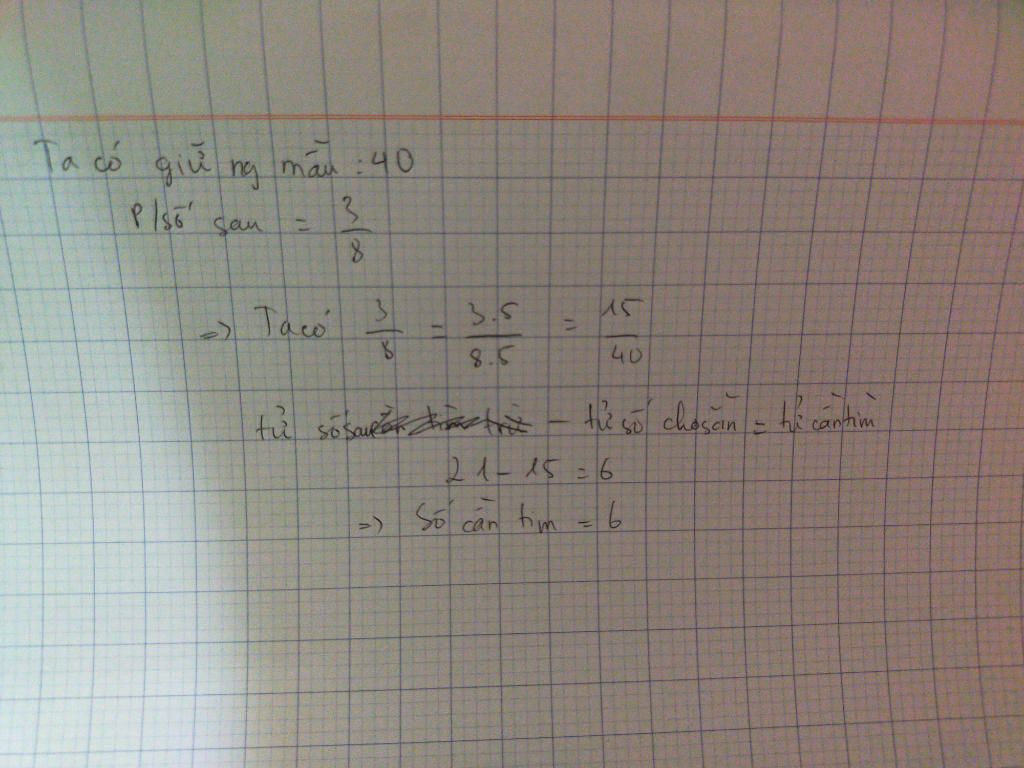 Ta có giữ ng mẫu : 40
P/số sau = 3/8
=> Ta có 3/8 = 3.5/8.5 = 15/40
tử số sau - tử số cho sẵn = tử cần tìm
21 - 15 = 6
=> Số cần tìm = 6